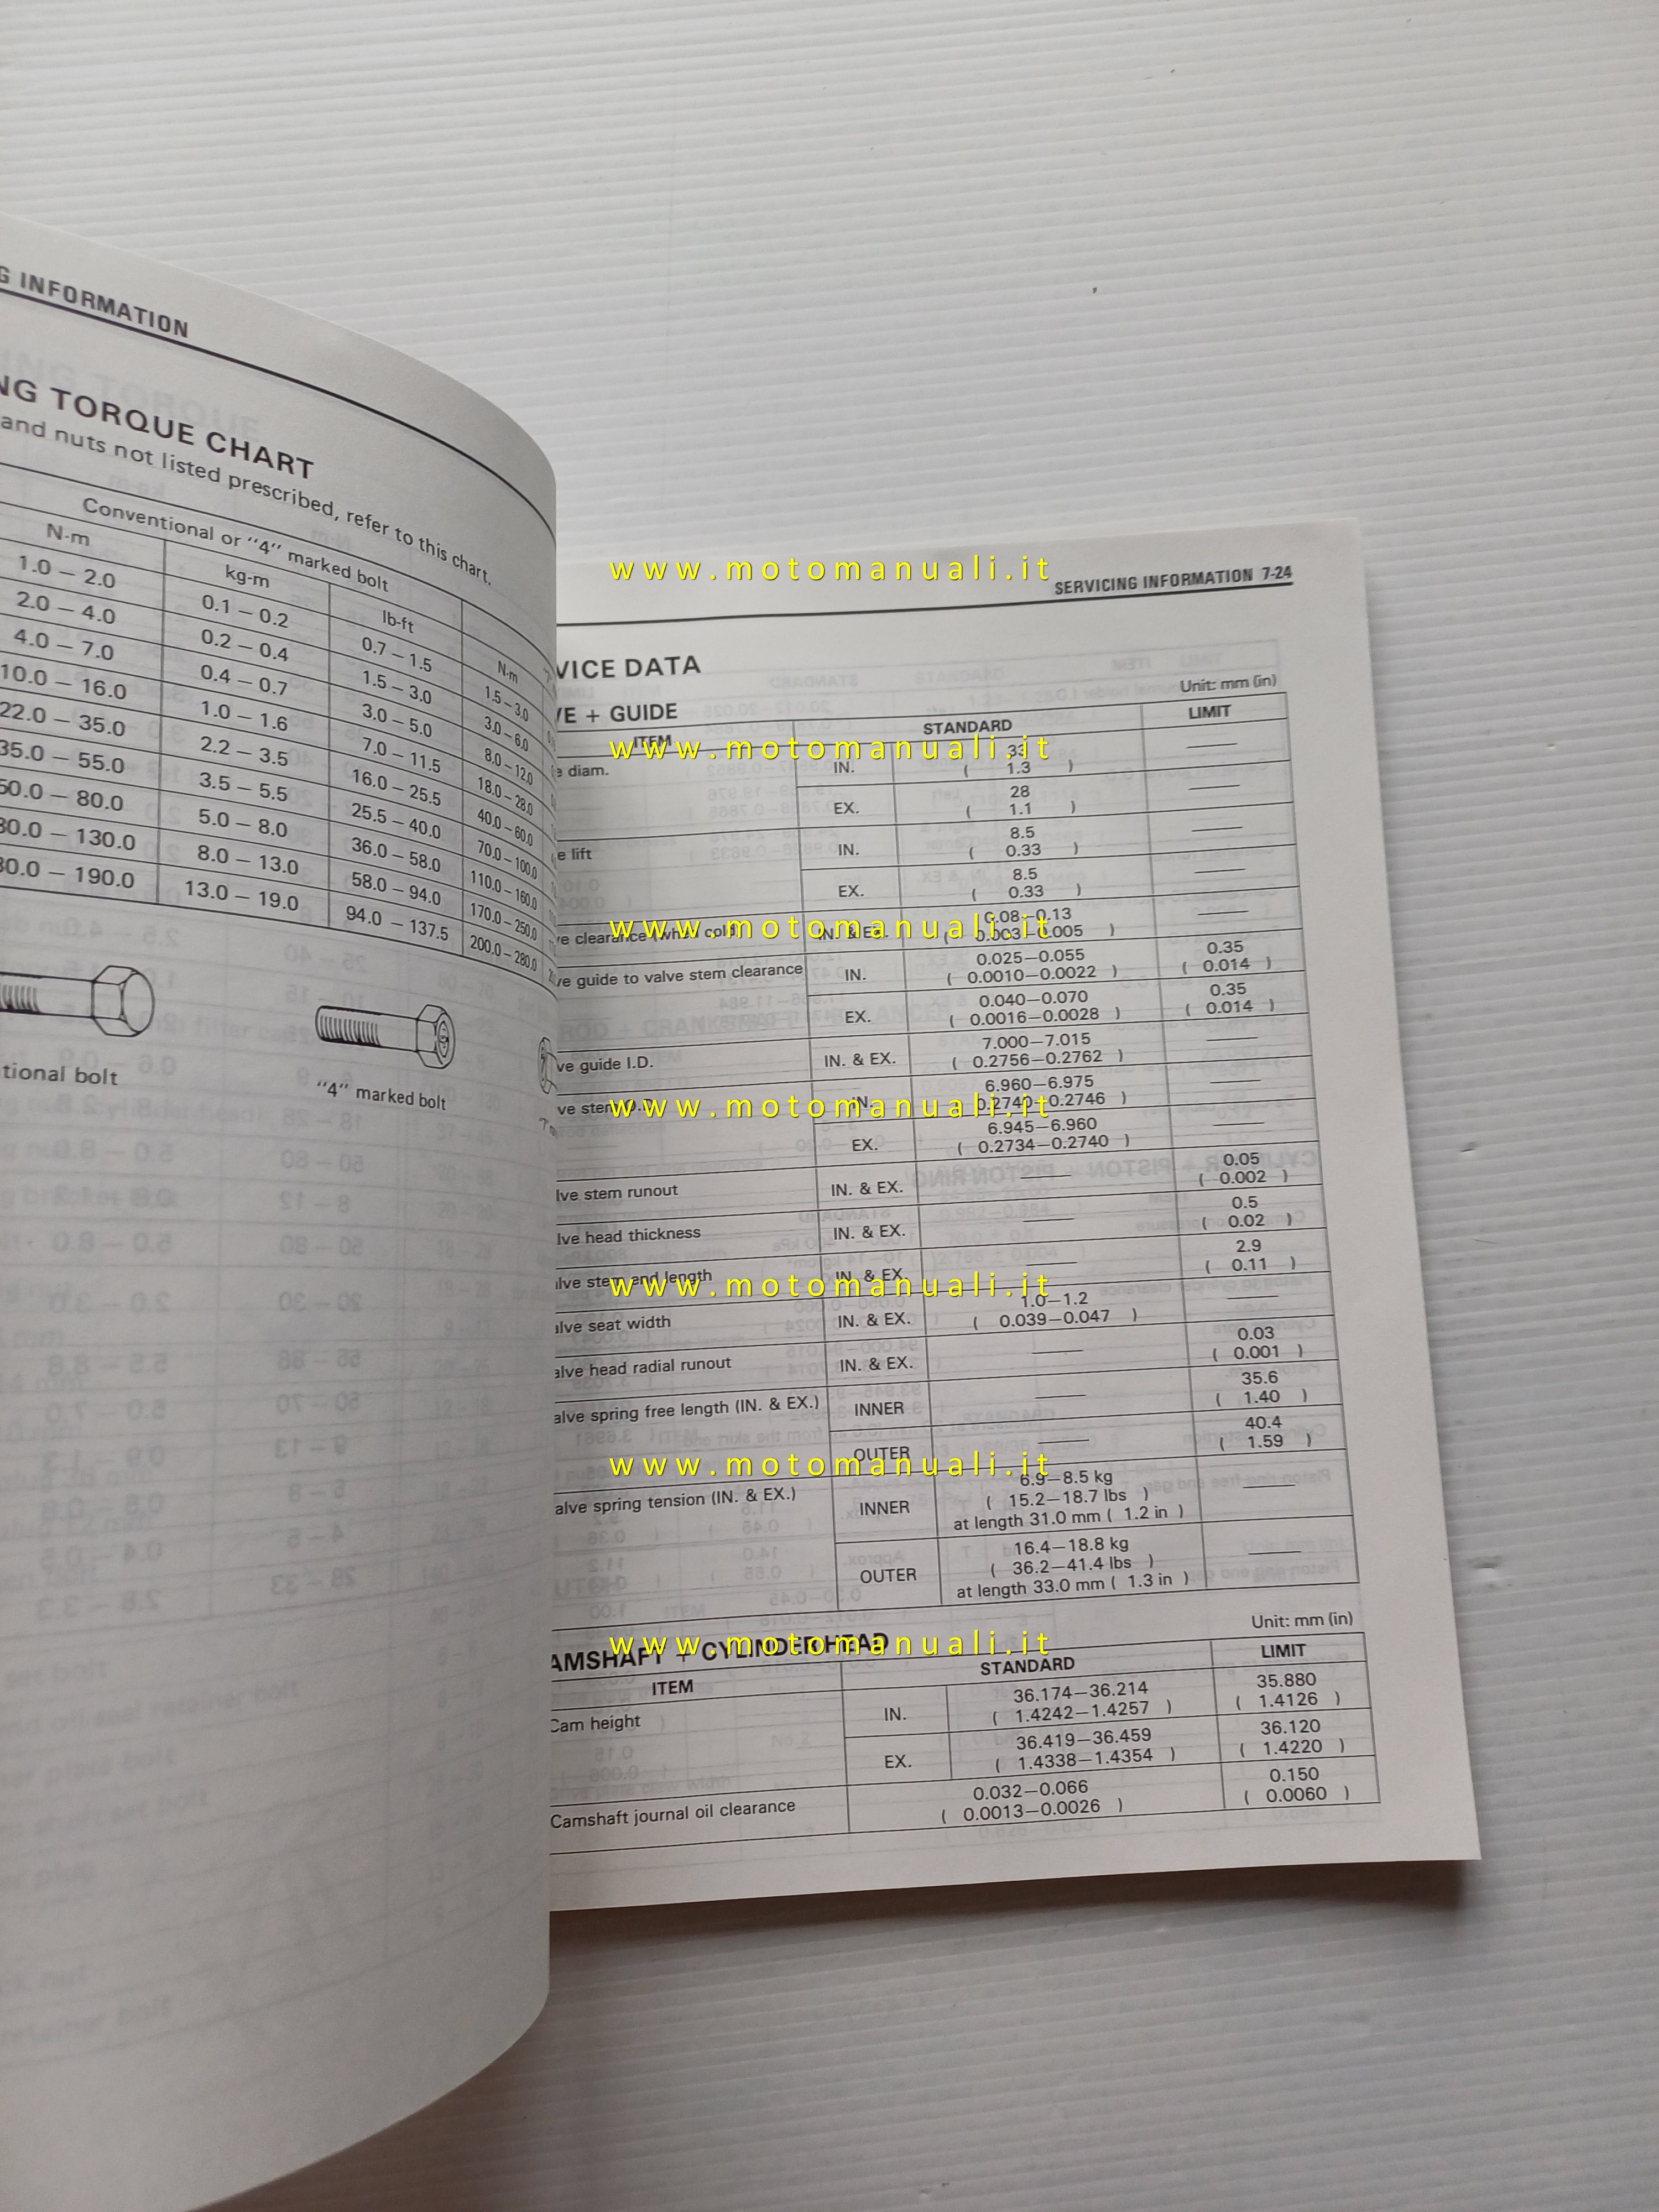 G INFORMATION
NG TORQUE CHART
and nuts not listed prescribed, refer to this chart.
Conventional or "4" marked bolt
N·m kg-m lb-ft N·m
1.0 – 2.0 0.1 – 0.2 0.7 – 1.5 1.5 – 3.0
2.0 – 4.0 0.2 – 0.4 1.5 – 3.0 3.0 – 6.0
4.0 – 7.0 0.4 – 0.7 3.0 – 5.0 8.0 – 12.0
10.0 – 16.0 1.0 – 1.6 7.0 – 11.5 18.0 – 28.0
22.0 – 35.0 2.2 – 3.5 16.0 – 25.5 40.0 – 60.0
35.0 – 55.0 3.5 – 5.5 25.5 – 40.0 70.0 – 100.0
50.0 – 80.0 5.0 – 8.0 36.0 – 58.0 110.0 – 160.0
80.0 – 130.0 8.0 – 13.0 58.0 – 94.0 170.0 – 250.0
30.0 – 190.0 13.0 – 19.0 94.0 – 137.5 200.0 – 280.0
tional bolt
"4" marked bolt
www.motomanuali.it
SERVICING INFORMATION 7-24
VICE DATA
Unit: mm (in)
VE + GUIDE
ITEM STANDARD LIMIT
www.motomanuali.it
e diam. IN. 33
( 1.3 )
EX. 28
( 1.1 )
e lift IN. 8.5
( 0.33 )
EX. 8.5
( 0.33 )
www.motomanuali.it
ve clearance (when cold) IN. & EX. 0.08–0.13
( 0.003–0.005 )
ve guide to valve stem clearance IN. 0.025–0.055 0.35
( 0.0010–0.0022 ) ( 0.014 )
EX. 0.040–0.070 0.35
( 0.0016–0.0028 ) ( 0.014 )
ve guide I.D. IN. & EX. 7.000–7.015
( 0.2756–0.2762 )
ve stem O.D. IN. 6.960–6.975
( 0.2740–0.2746 )
www.motomanuali.it
EX. 6.945–6.960
( 0.2734–0.2740 )
lve stem runout IN. & EX. 0.05
( 0.002 )
lve head thickness IN. & EX. 0.5
( 0.02 )
alve stem end length IN. & EX. 2.9
( 0.11 )
www.motomanuali.it
alve seat width IN. & EX. 1.0–1.2
( 0.039–0.047 )
alve head radial runout IN. & EX. 0.03
( 0.001 )
alve spring free length (IN. & EX.) INNER 35.6
( 1.40 )
OUTER 40.4
( 1.59 )
www.motomanuali.it
alve spring tension (IN. & EX.) INNER 6.9–8.5 kg
( 15.2–18.7 lbs )
at length 31.0 mm ( 1.2 in )
OUTER 16.4–18.8 kg
( 36.2–41.4 lbs )
at length 33.0 mm ( 1.3 in )
AMSHAFT + CYLINDER HEAD
Unit: mm (in)
www.motomanuali.it
ITEM STANDARD LIMIT
Cam height IN. 36.174–36.214 35.880
( 1.4242–1.4257 ) ( 1.4126 )
EX. 36.419–36.459 36.120
( 1.4338–1.4354 ) ( 1.4220 )
Camshaft journal oil clearance 0.032–0.066 0.150
( 0.0013–0.0026 ) ( 0.0060 )